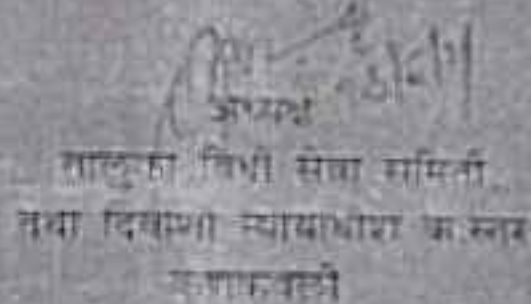 अध्यक्ष
तालुका विधी सेवा समिती
तथा दिवाणी न्यायाधीश क.स्तर
कणकवली